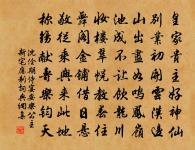 皇家貴主好神仙
別業初開雲漢邊
山出盡如鳴鳳嶺
池成不讓飲龍川
粧樓翠幌教春住
舞閣金鋪借日懸
敬從乘輿來此地
稱觴獻壽樂鈞天
沈佺期侍宴安樂公主
新宅應制詞典網集